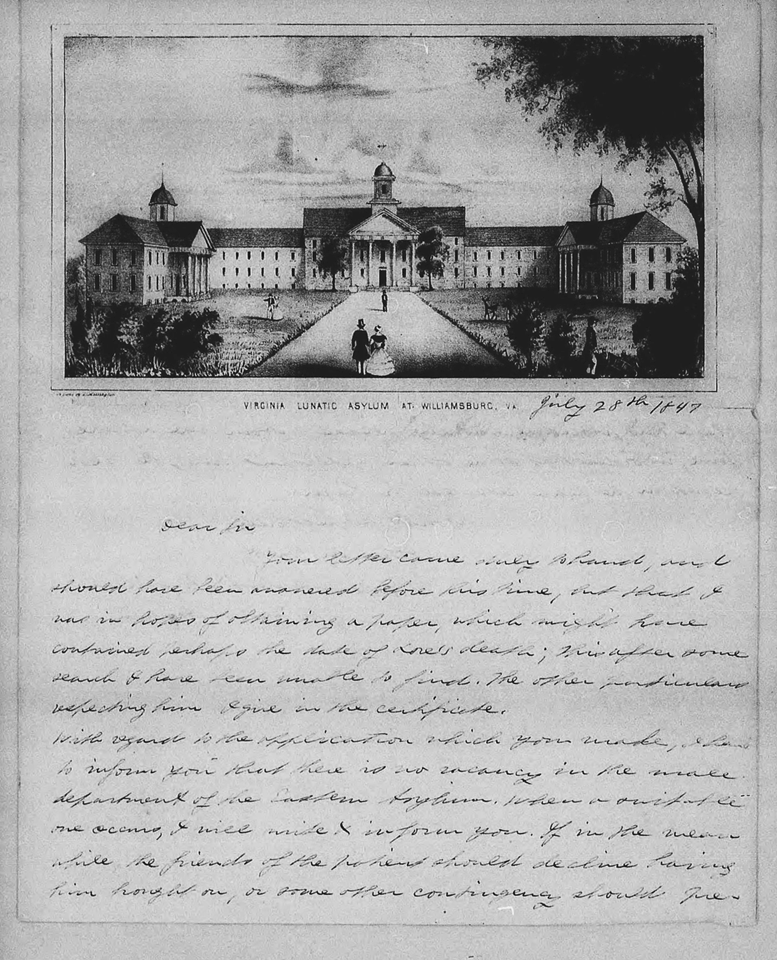 VIRGINIA LUNATIC ASYLUM AT WILLIAMSBURG, VA. July 28th 1847
Dear Sir
Your letter came duly to hand, and
should have been answered before this time, but that I
was in hopes of obtaining a paper, which might have
contained perhaps the date of death; this after some
search I have been unable to find. The other particulars
respecting him I give in the certificate.
With regard to the application which you make, I have
to inform you that there is no vacancy in the male
department of the Eastern Asylum. When a suitable
one occurs, I will write & inform you. If in the mean
while, the friends of the patient should decline having
him brought on, or some other contingency should pre-